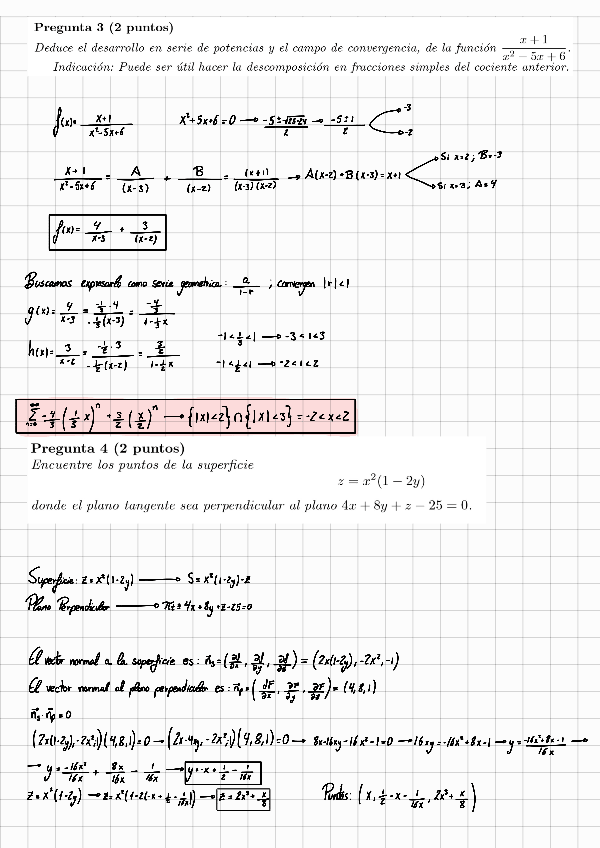 Pregunta 3 (2 puntos)
Deduce el desarrollo en serie de potencias y el campo de convergencia, de la función (x + 1)/(x² − 5x + 6).
Indicación: Puede ser útil hacer la descomposición en fracciones simples del cociente anterior.
f(x) = (x+1)/(x²-5x+6)    x²+5x+6=0 → (-5±√(25-24))/2 → (-5±1)/2 → -3
→ -2
(x+1)/(x²-5x+6) = A/(x-3) + B/(x-2) = (x+1)/((x-3)(x-2)) → A(x-2)+B(x-3)=x+1 → Si x=2; B=-3
→ Si x=3; A=4
f(x) = 4/(x-3) + 3/(x-2)
Buscamos expresarlo como serie geometrica: a/(1-r) ; convergen |r|<1
g(x) = 4/(x-3) = (-1/3·4)/(-1/3(x-3)) = (-4/3)/(1-1/3x)
-1<1/3<1 → -3<1<3
h(x) = 3/(x-2) = (-1/2·3)/(-1/2(x-2)) = (3/2)/(1-1/2x)
-1<1/2<1 → -2<1<2
∑ n=0 ∞ -4/3 (1/3 x)ⁿ + 3/2 (x/2)ⁿ → {|x|<2} ∩ {|x|<3} = -2<x<2
Pregunta 4 (2 puntos)
Encuentre los puntos de la superficie
z = x²(1 − 2y)
donde el plano tangente sea perpendicular al plano 4x + 8y + z − 25 = 0.
Superficie: z = x²(1-2y) → S = x²(1-2y)-z
Plano Perpendicular → π₁ = 4x+8y+z-25=0
El vector normal a la superficie es: n⃗s = (∂f/∂x, ∂f/∂y, ∂f/∂z) = (2x(1-2y), -2x², -1)
El vector normal al plano perpendicular es: n⃗p = (∂F/∂x, ∂F/∂y, ∂F/∂z) = (4,8,1)
n⃗s · n⃗p = 0
(2x(1-2y), -2x², 1)(4,8,1)=0 → (2x-4xy, -2x², 1)(4,8,1)=0 → 8x-16xy-16x²-1=0 → 16xy=-16x²+8x-1 → y = (-16x²+8x-1)/16x →
→ y = -16x²/16x + 8x/16x - 1/16x → y=-x+1/2-1/16x
z = x²(1-2y) → z = x²(1-2(-x+1/2-1/16x)) → z = 2x³+x/8    Puntos: (x, 1/2-x-1/16x, 2x³+x/8)